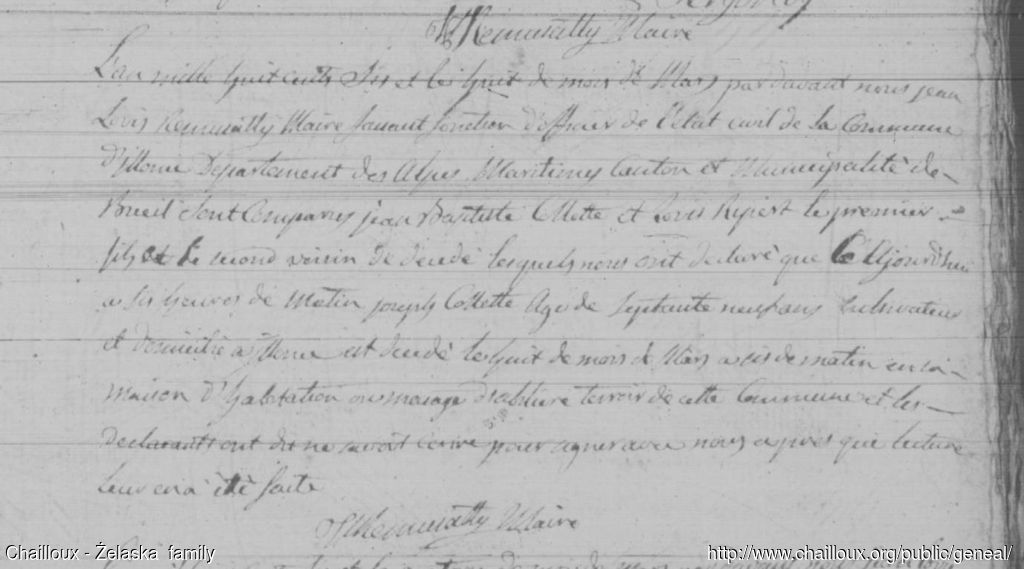 Maire
L'an mille huit cents six et le huit de mois de Mars par davant nous jean
Lovis Remusatty Maire faisant fonction d'officier de l'état civil de la Commune
d'illonse Departement des Alpes Maritimes Canton et Municipalité de
Bueil sont Comparus jean Baptiste Collette et Lovis Ripert le premier
fils et le second voisin de decedé lesquels nous ont declaré que Le Ajourd'hui
a six heures de Matin joseph Collette Agé de septante neuf ans Cultivateur
et domicilié a illonse est decedé le huit de mois de Mars a six de matin en sa
maison d'habitation terroir de cette Commune et les
declarants ont dit ne savoir ecrire pour signer avec nous apres que lecture
leur en a été faite
Remusatty Maire
Chailloux - Żelaska family
http://www.chailloux.org/public/geneal/